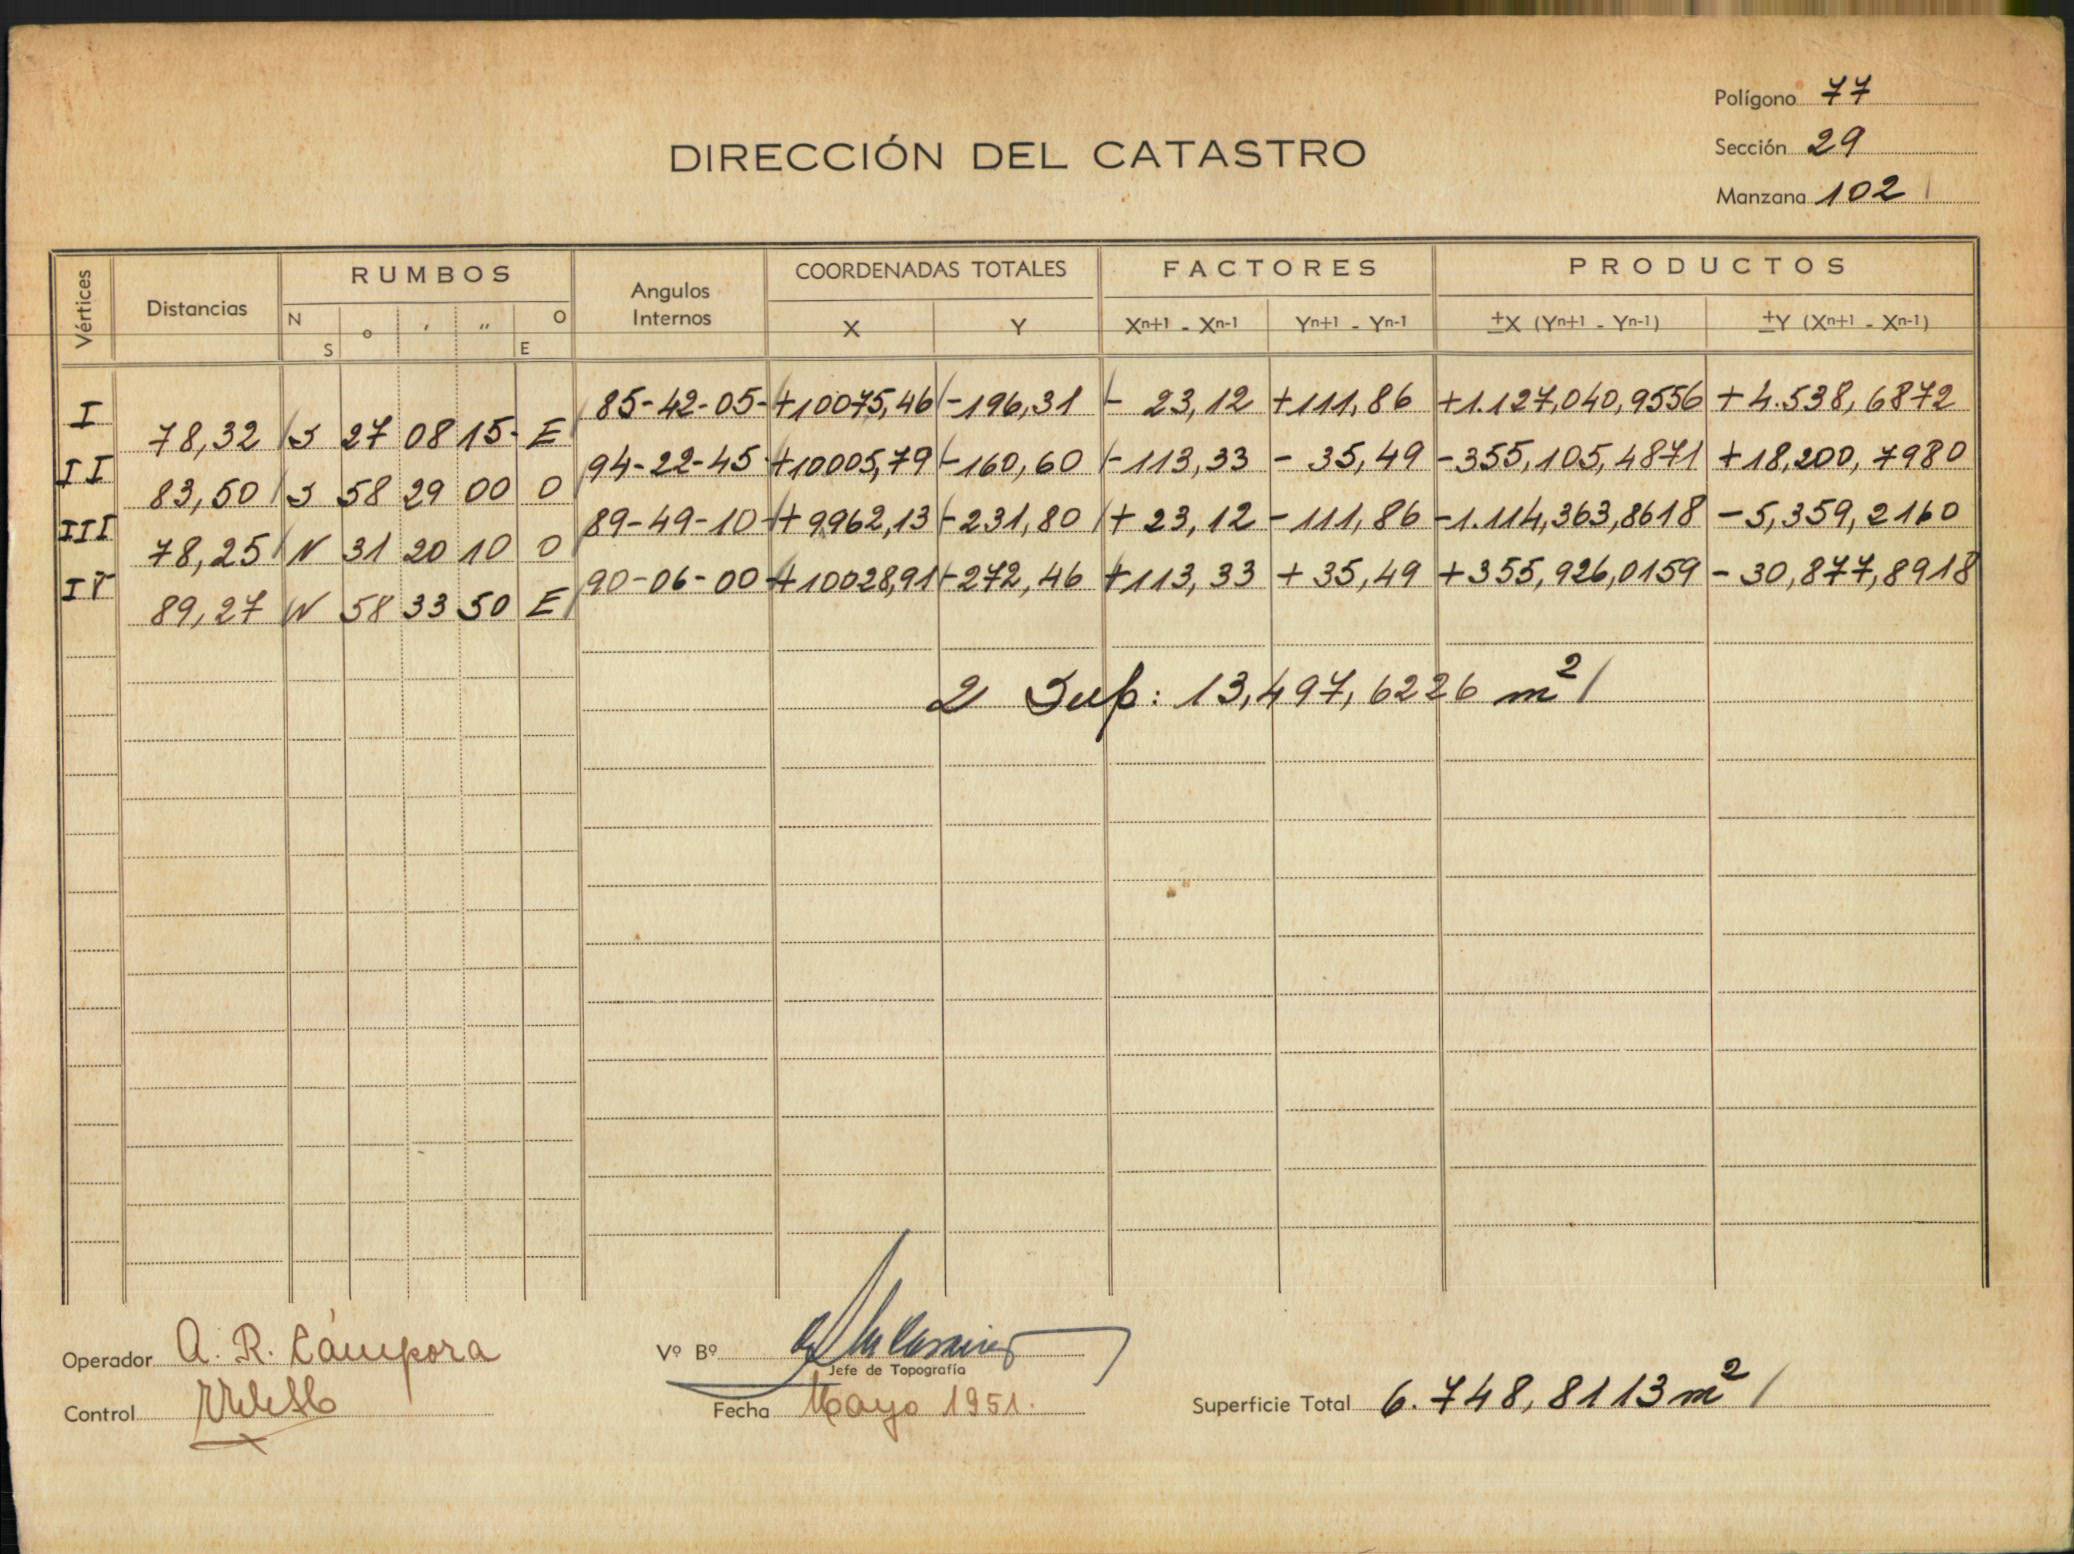 Polígono 77
Sección 29
Manzana 102
DIRECCIÓN DEL CATASTRO
Vértices Distancias RUMBOS Angulos Internos COORDENADAS TOTALES FACTORES PRODUCTOS
N S ° ' " O E X Y Xn+1 - Xn-1 Yn+1 - Yn-1 ±X (Yn+1 - Yn-1) ±Y (Xn+1 - Xn-1)
I 85-42-05- +10075,46 -196,31 - 23,12 +111,86 +1.127,040,9556 + 4.538,6872
78,32 S 27 08 15- E
II 94-22-45 +10005,79 -160,60 -113,33 - 35,49 -355,105,4871 +18,200,7980
83,50 S 58 29 00 O
III 89-49-10 + 9962,13 -231,80 + 23,12 -111,86 -1.114,363,8618 -5,359,2160
78,25 N 31 20 10 O
IV 90-06-00 +10028,91 -272,46 +113,33 + 35,49 +355,926,0159 - 30,877,8918
89,27 N 58 33 50 E
2 Sup: 13,497,6226 m²
Operador A. R. Cámpora
Vº Bº
Jefe de Topografía
Control
Fecha Mayo 1951.
Superficie Total 6.748,8113 m²